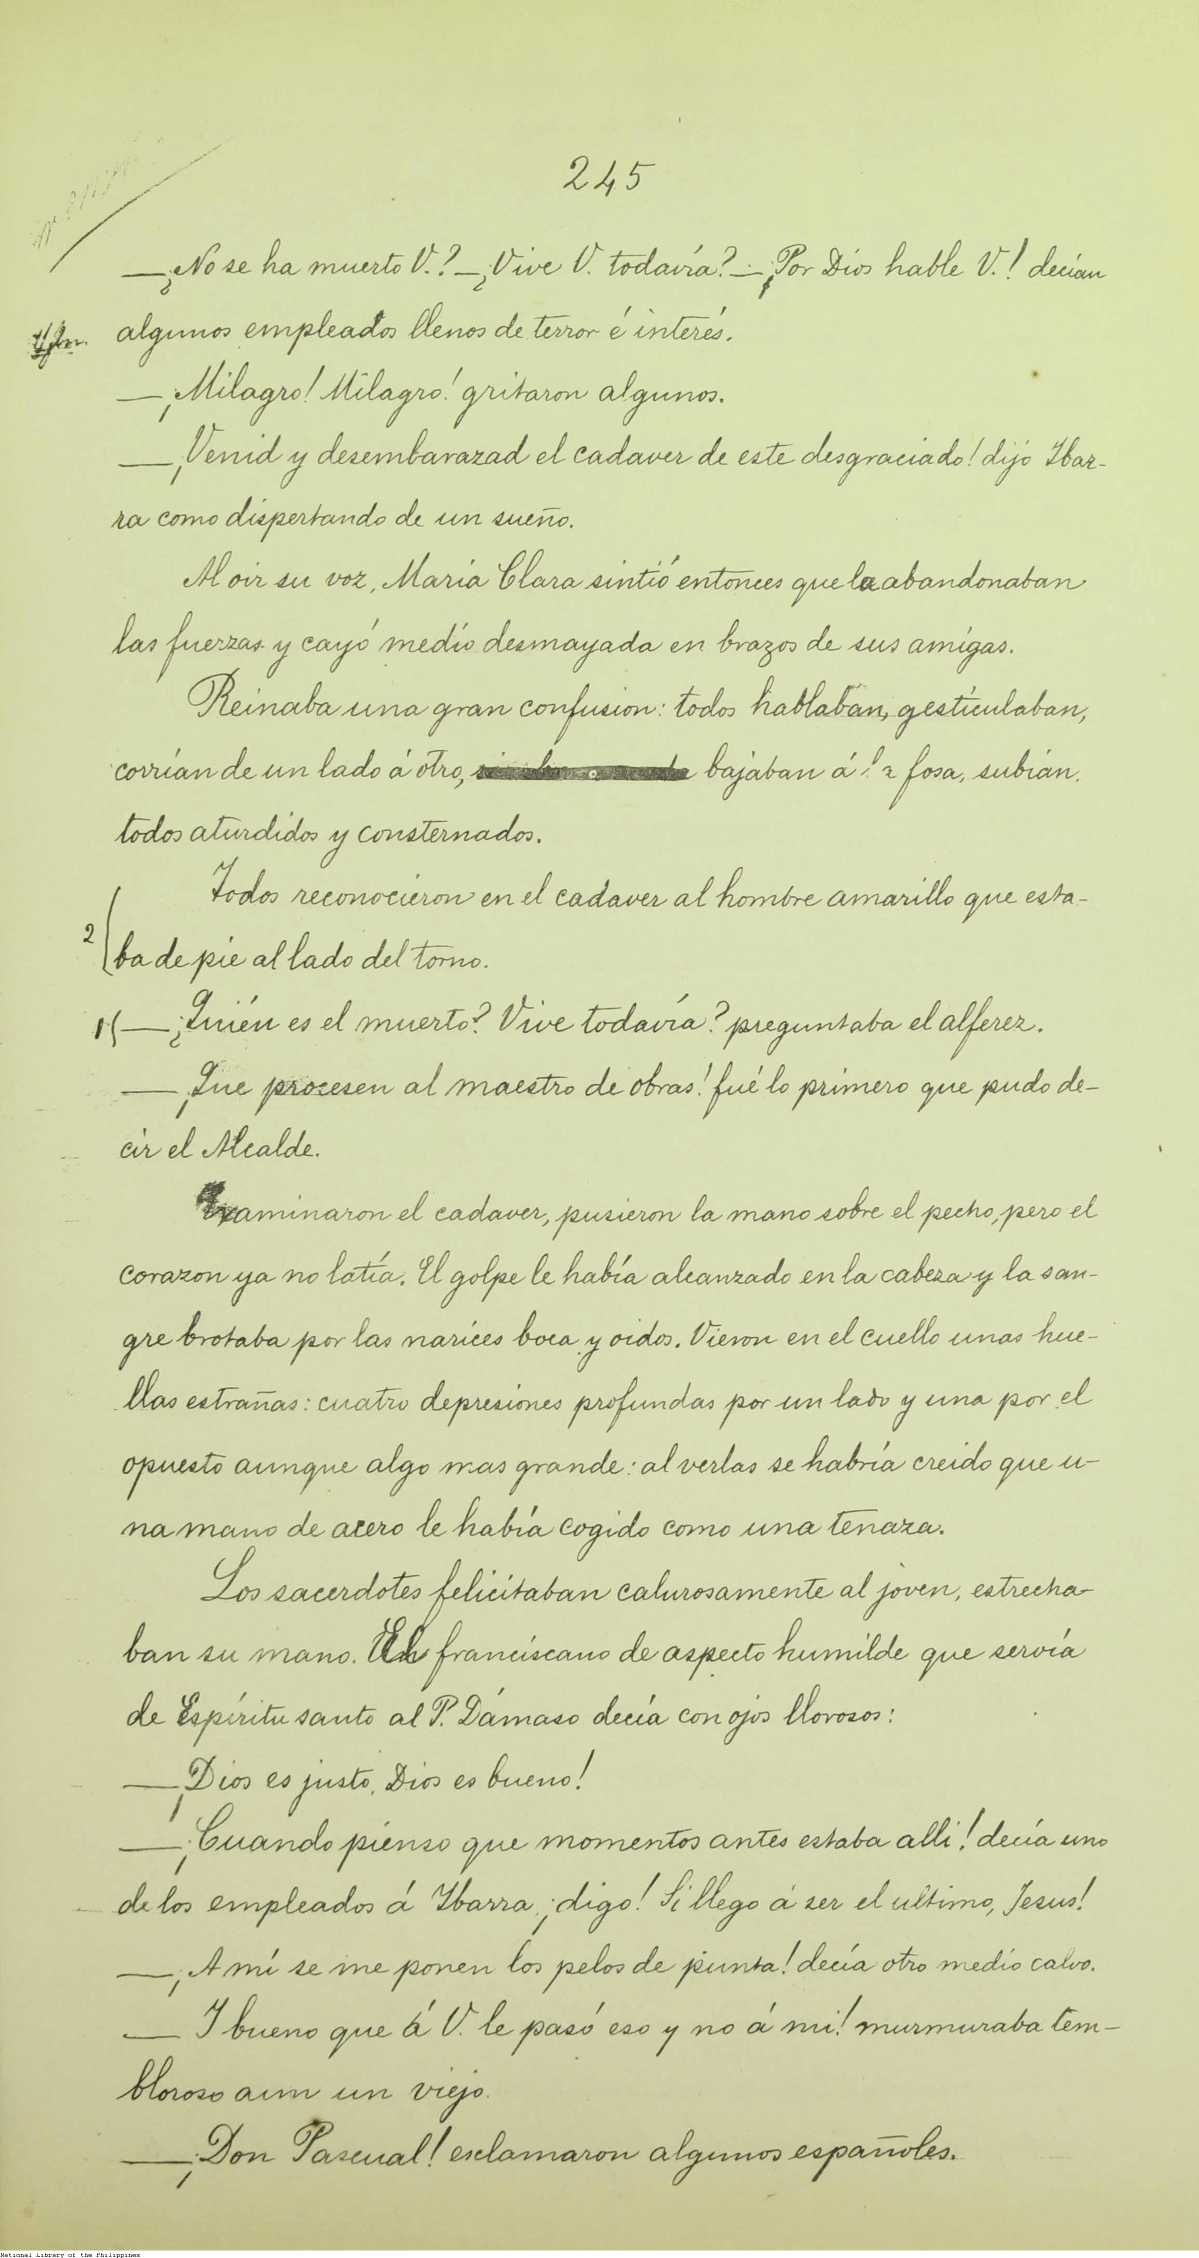 245
—¿No se ha muerto V.? —¿Vive V. todavía? —¡Por Dios hable V.! decían
algunos empleados llenos de terror é interés.
—¡Milagro! Milagro! gritaron algunos.
—¡Venid y desembarazad el cadaver de este desgraciado! dijo Ibar-
ra como dispertando de un sueño.
Al oir su voz, María Clara sintió entonces que la abandonaban
las fuerzas y cayó medio desmayada en brazos de sus amigas.
Reinaba una gran confusion: todos hablaban, gesticulaban,
corrían de un lado á otro, bajaban á la fosa, subían,
todos aturdidos y consternados.
Todos reconocieron en el cadaver al hombre amarillo que esta-
2 ba de pie al lado del torno.
1 —¿Quién es el muerto? Vive todavía? preguntaba el alferez.
—¡Que procesen al maestro de obras! fué lo primero que pudo de-
cir el Alcalde.
Examinaron el cadaver, pusieron la mano sobre el pecho, pero el
corazon ya no latía. El golpe le había alcanzado en la cabeza y la san-
gre brotaba por las narices boca y oidos. Vieron en el cuello unas hue-
llas estrañas: cuatro depresiones profundas por un lado y una por el
opuesto aunque algo mas grande: al verlas se habría creido que u-
na mano de acero le había cogido como una tenaza.
Los sacerdotes felicitaban calurosamente al joven, estrecha-
ban su mano. El franciscano de aspecto humilde que servía
de Espíritu santo al P. Dámaso decía con ojos llorosos:
—¡Dios es justo, Dios es bueno!
—¡Cuando pienso que momentos antes estaba alli! decía uno
de los empleados á Ibarra, ¡digo! Si llego á ser el ultimo, Jesus!
—¡A mí se me ponen los pelos de punta! decía otro medio calvo.
—Y bueno que á V. le pasó eso y no á mi! murmuraba tem-
bloroso aun un viejo.
—¡Don Pascual! esclamaron algunos españoles.
National Library of the Philippines